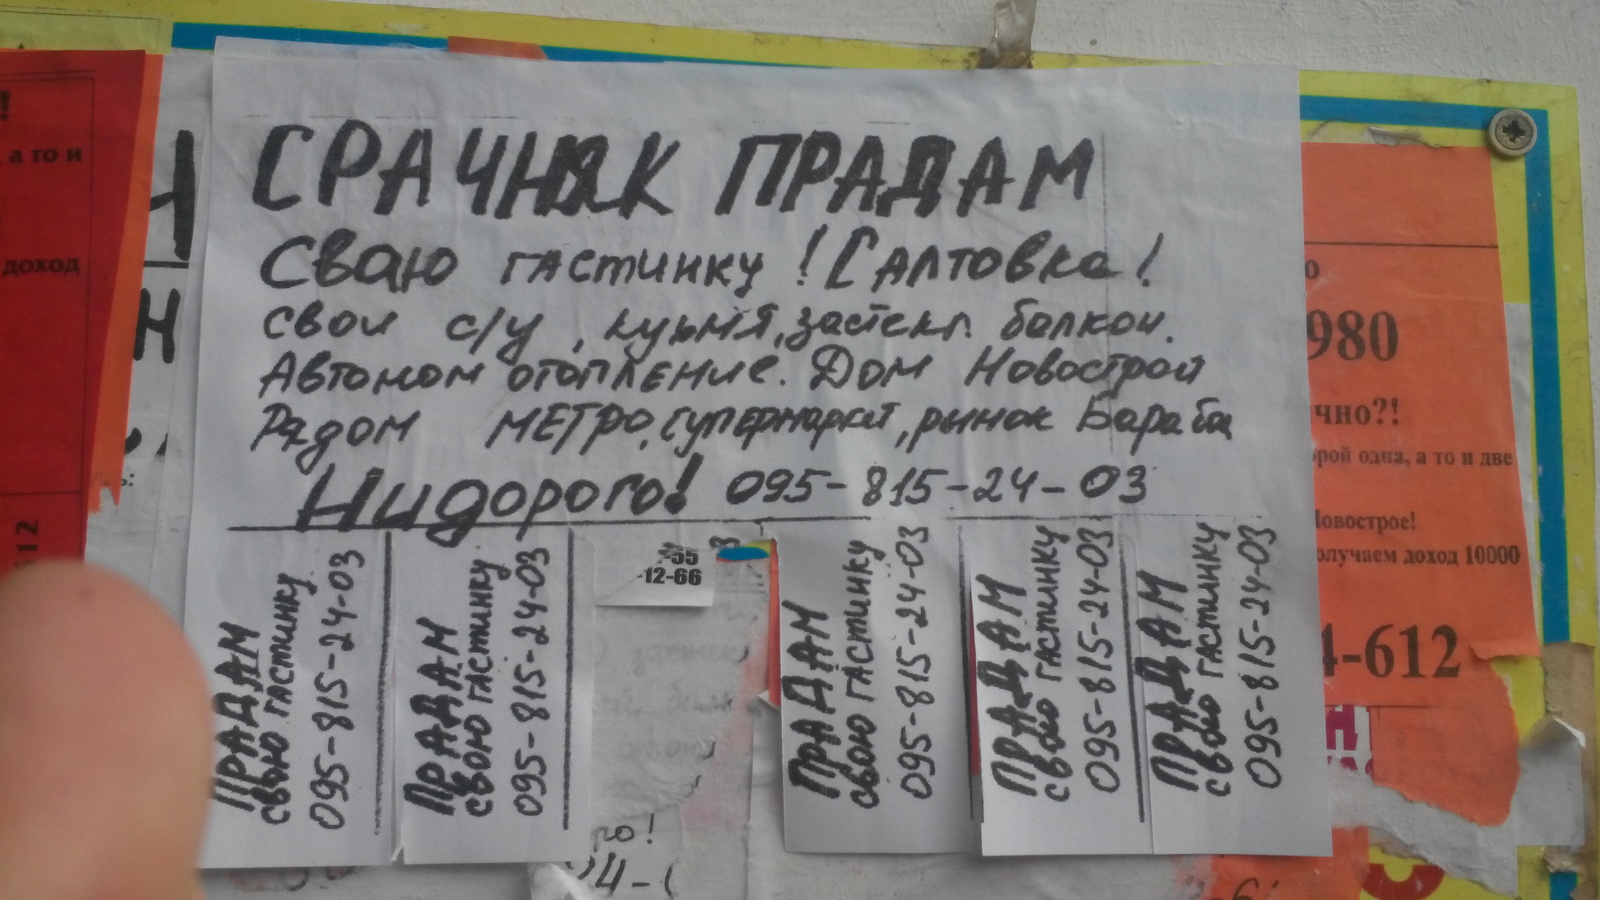 СРАЧНЯК ПРАДАМ
Сваю гастинку! Салтовка!
свои с/у, кухня, застекл. балкон.
Автоном отопление. Дом Новострой
Рядом МЕТРО, супермаркет, рынок Бараба
Нидорого! 095-815-24-03
ПРАДАМ
свою гастинку
095-815-24-03
ПРАДАМ
свою гастинку
095-815-24-03
ПРАДАМ
свою гастинку
095-815-24-03
ПРАДАМ
свою гастинку
095-815-24-03
ПРАДАМ
свою гастинку
095-815-24-03
-55
-12-66
!
а то и
доход
612
980
чно?!
рой одна, а то и две
Новострое!
олучаем доход 10000
4-612
го!
24-